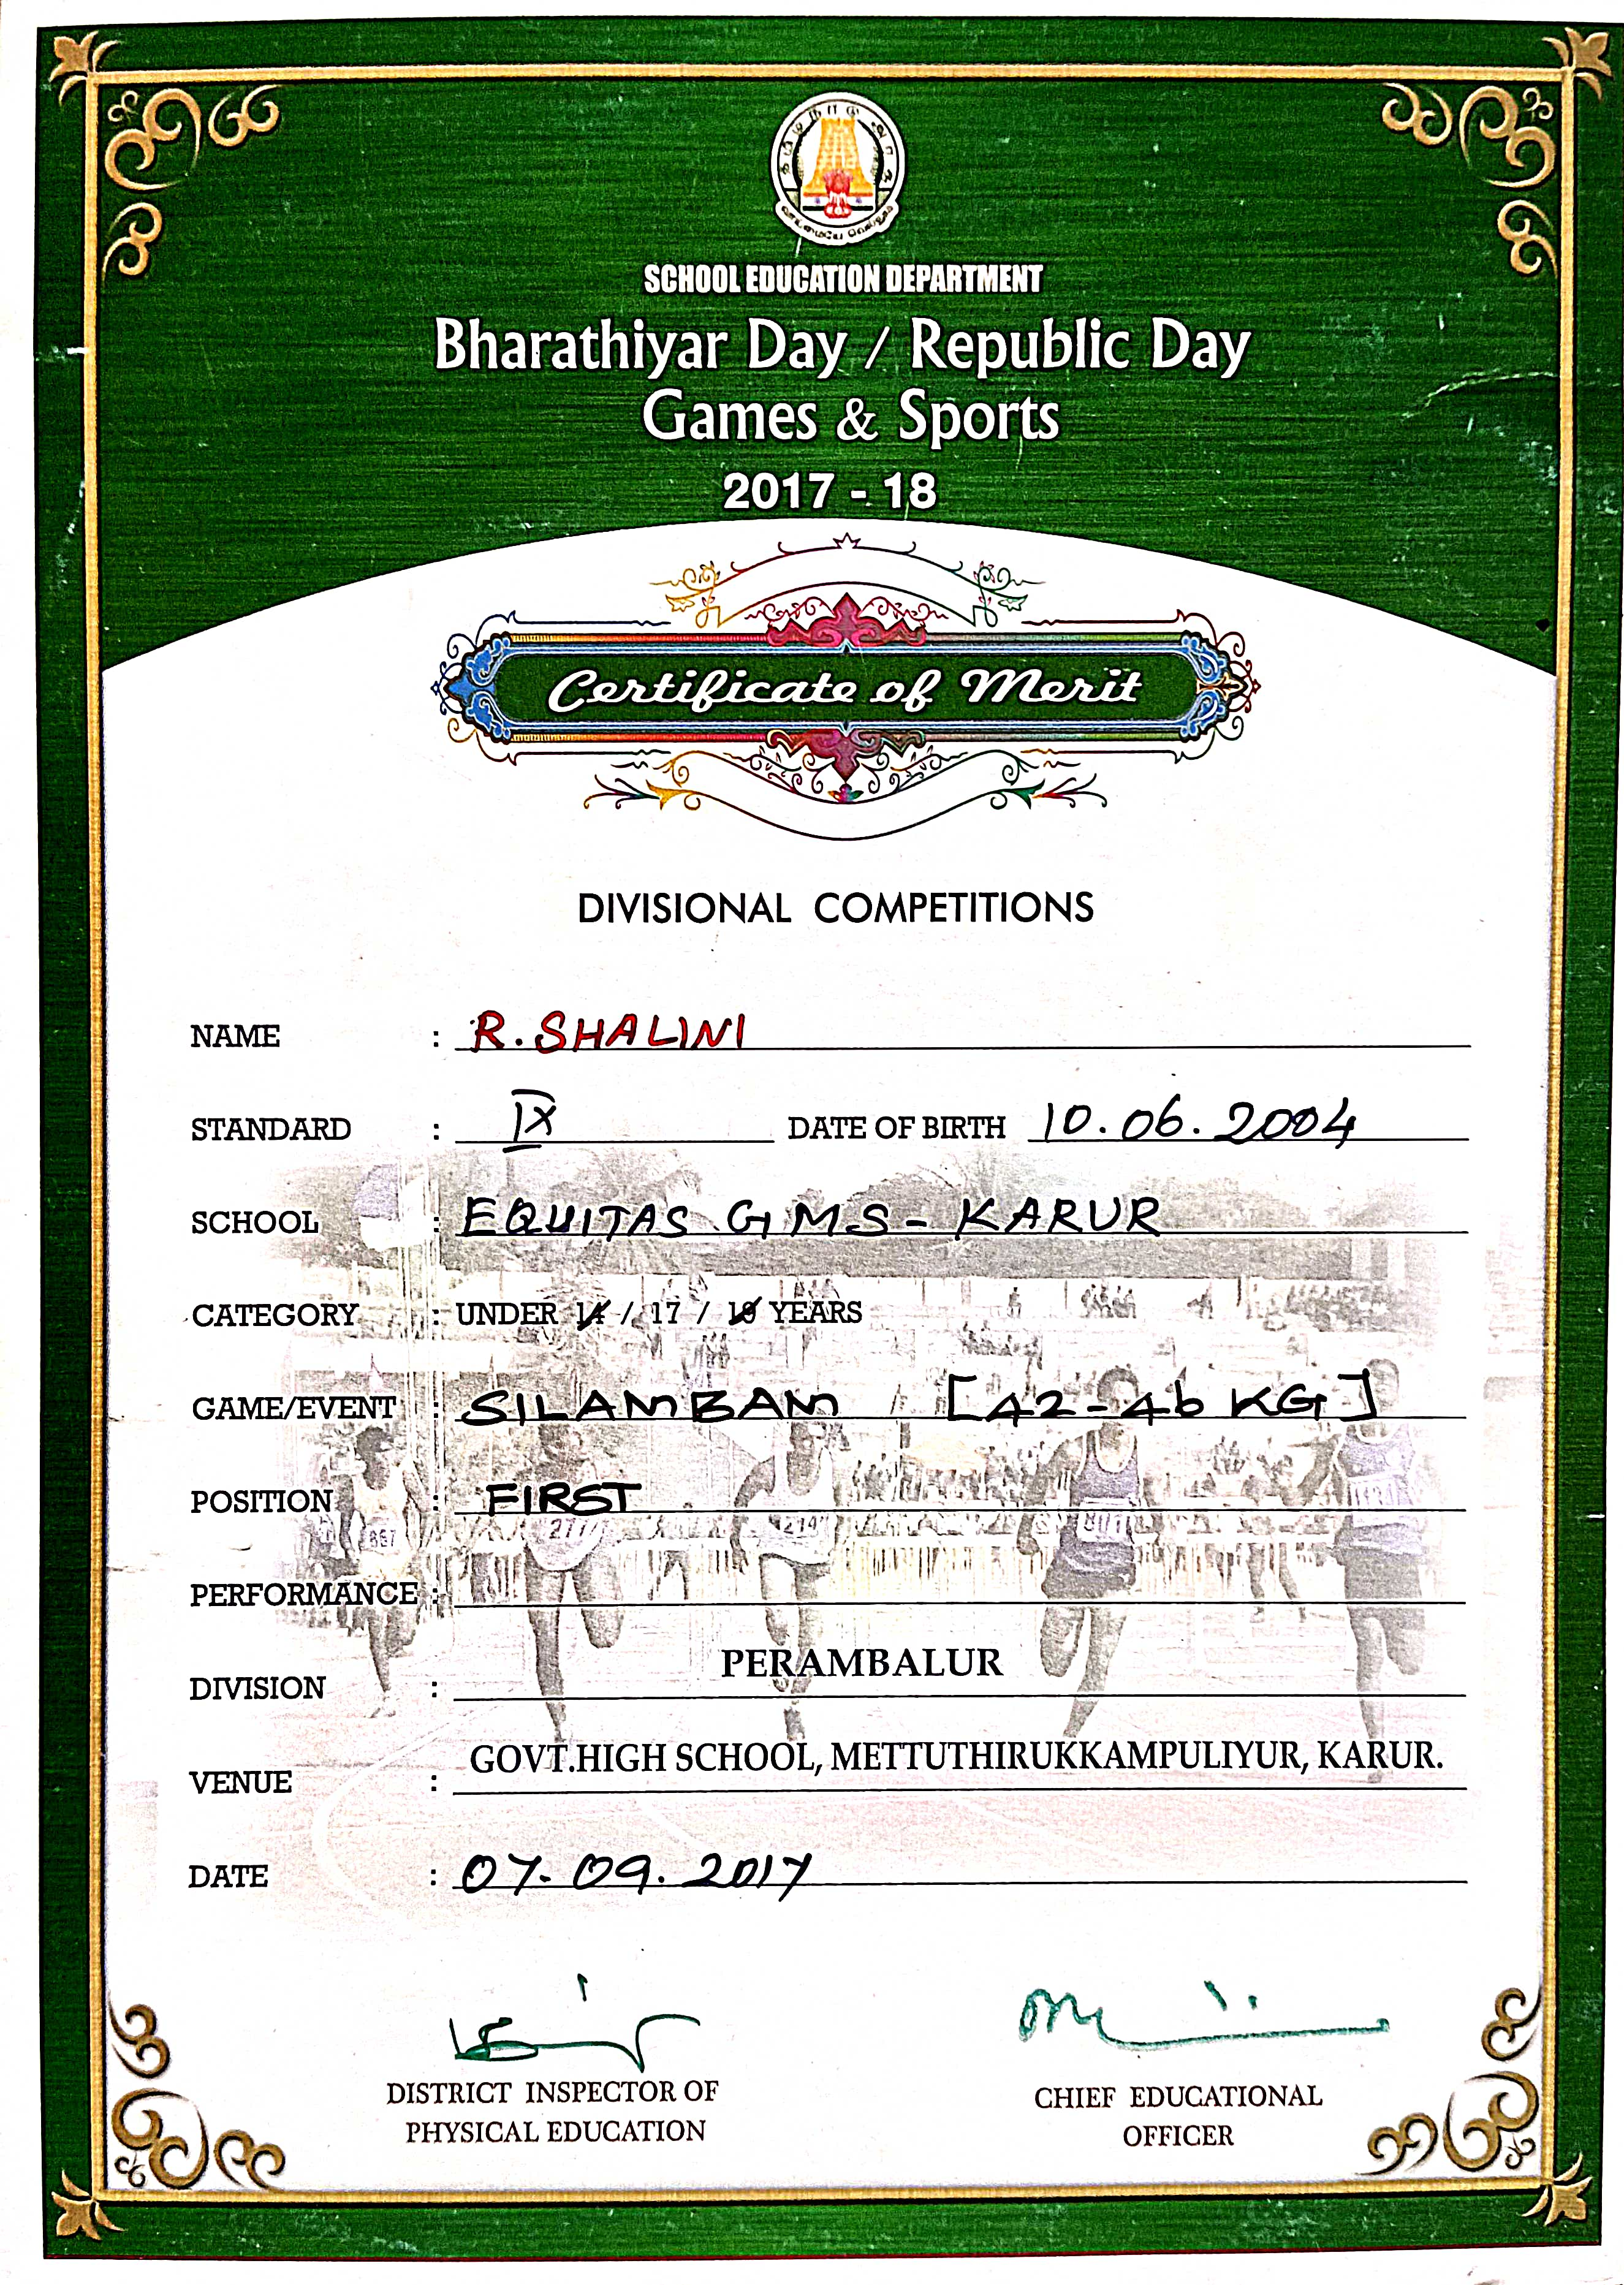 தமிழ்நாடு அரசு
வாய்மையே வெல்லும்
SCHOOL EDUCATION DEPARTMENT
Bharathiyar Day / Republic Day
Games & Sports
2017 - 18
Certificate of Merit
DIVISIONAL COMPETITIONS
NAME : R. SHALINI
STANDARD : IX DATE OF BIRTH 10.06.2004
SCHOOL : EQUITAS G.M.S - KARUR
CATEGORY : UNDER 14 / 17 / 19 YEARS
GAME/EVENT : SILAMBAM [42-46 KG]
POSITION : FIRST
PERFORMANCE :
DIVISION : PERAMBALUR
VENUE : GOVT.HIGH SCHOOL, METTUTHIRUKKAMPULIYUR, KARUR.
DATE : 07.09.2017
DISTRICT INSPECTOR OF
PHYSICAL EDUCATION
CHIEF EDUCATIONAL
OFFICER